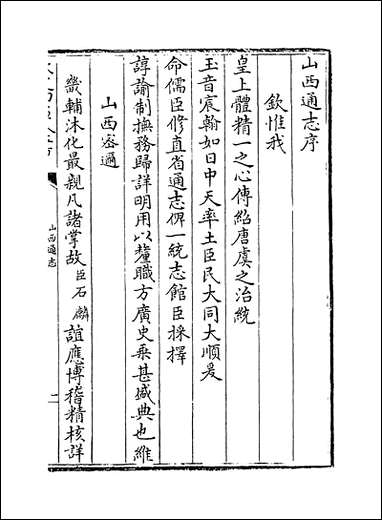 山西通志序
欽惟我
皇上體精一之心傳紹唐虞之治統
玉音宸翰如日中天率土臣民大同大順爰
命儒臣修直省通志俾一統志館臣採擇
諄諭制撫務歸詳明用以釐職方廣史乘甚盛典也維
山西密邇
畿輔沐化最親凡諸掌故臣石麟誼應博稽精核詳
山西通志
一